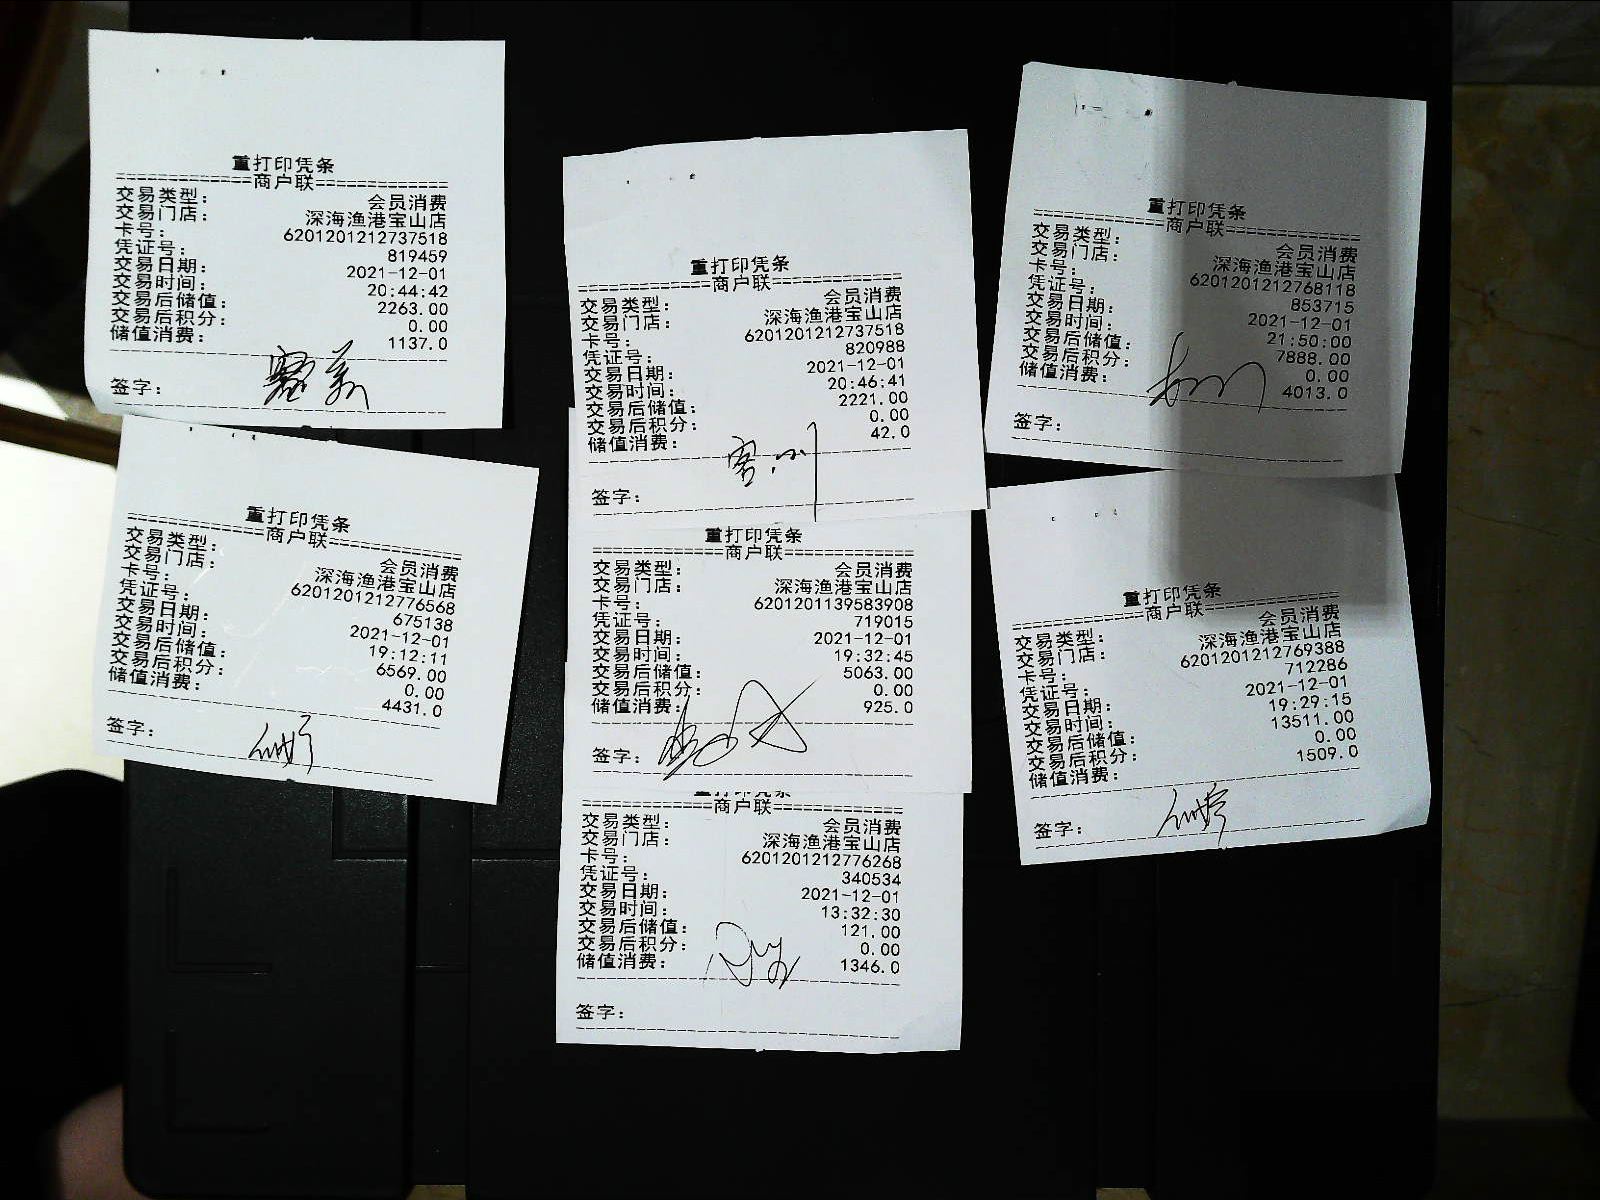 重打印凭条
================商户联================
交易类型: 会员消费
交易门店: 深海渔港宝山店
卡号: 6201201212737518
凭证号: 819459
交易日期: 2021-12-01
交易时间: 20:44:42
交易后储值: 2263.00
交易后积分: 0.00
储值消费: 1137.0
签字:
重打印凭条
================商户联================
交易类型: 会员消费
交易门店: 深海渔港宝山店
卡号: 6201201212776568
凭证号: 675138
交易日期: 2021-12-01
交易时间: 19:12:11
交易后储值: 6569.00
交易后积分: 0.00
储值消费: 4431.0
签字:
重打印凭条
================商户联================
交易类型: 会员消费
交易门店: 深海渔港宝山店
卡号: 6201201212737518
凭证号: 820988
交易日期: 2021-12-01
交易时间: 20:46:41
交易后储值: 2221.00
交易后积分: 0.00
储值消费: 42.0
签字:
重打印凭条
================商户联================
交易类型: 会员消费
交易门店: 深海渔港宝山店
卡号: 6201201139583908
凭证号: 719015
交易日期: 2021-12-01
交易时间: 19:32:45
交易后储值: 5063.00
交易后积分: 0.00
储值消费: 925.0
签字:
重打印凭条
================商户联================
交易类型: 会员消费
交易门店: 深海渔港宝山店
卡号: 6201201212776268
凭证号: 340534
交易日期: 2021-12-01
交易时间: 13:32:30
交易后储值: 121.00
交易后积分: 0.00
储值消费: 1346.0
签字:
重打印凭条
================商户联================
交易类型: 会员消费
交易门店: 深海渔港宝山店
卡号: 6201201212768118
凭证号: 853715
交易日期: 2021-12-01
交易时间: 21:50:00
交易后储值: 7888.00
交易后积分: 0.00
储值消费: 4013.0
签字:
重打印凭条
================商户联================
交易类型: 会员消费
交易门店: 深海渔港宝山店
卡号: 6201201212769388
凭证号: 712286
交易日期: 2021-12-01
交易时间: 19:29:15
交易后储值: 13511.00
交易后积分: 0.00
储值消费: 1509.0
签字: